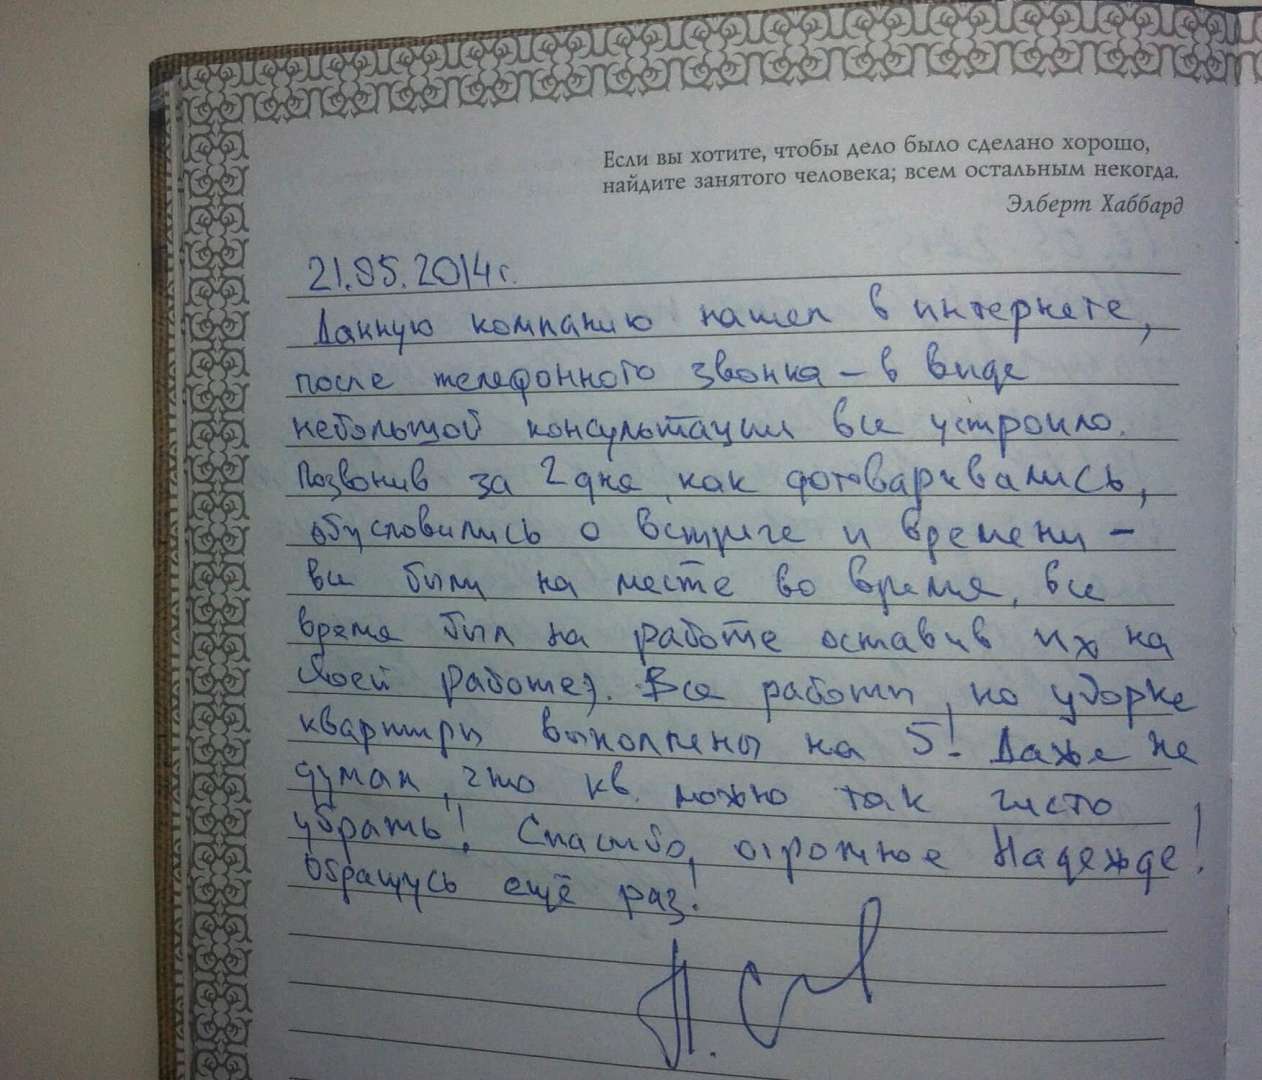 Если вы хотите, чтобы дело было сделано хорошо,
найдите занятого человека; всем остальным некогда.
Элберт Хаббард
21.05.2014г.
Данную компанию нашел в интернете,
после телефонного звонка – в виде
небольшой консультации все устроило.
Позвонив за 2 дня, как договаривались,
обусловились о встрече и времени –
все были на месте во время, все
время был на работе оставив их на
своей работе). Все работы, по уборке
квартиры выполнены на 5! Даже не
думал, что кв. можно так чисто
убрать! Спасибо, огромное Надежде!
Обращусь ещё раз!